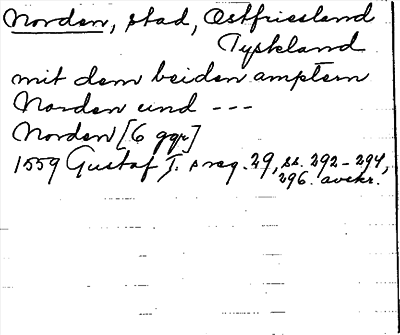 Norden, stad, Ostfriesland
Tyskland
mit dem beiden amptern
Norden und ---
Norden [6 ggr]
1559 Gustaf I. s reg. 29, ss. 292-294,
296. avskr.